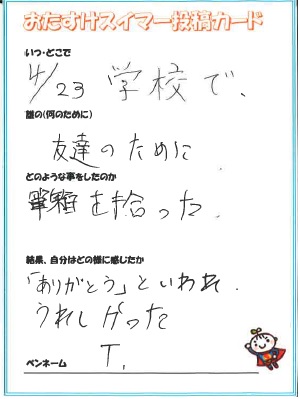 おたすけスイマー投稿カード
いつ・どこで
4/23 学校で、
誰の(何のために)
友達のために
どのような事をしたのか
筆箱を拾った。
結果、自分はどの様に感じたか
「ありがとう」といわれ、
うれしかった
ペンネーム T.